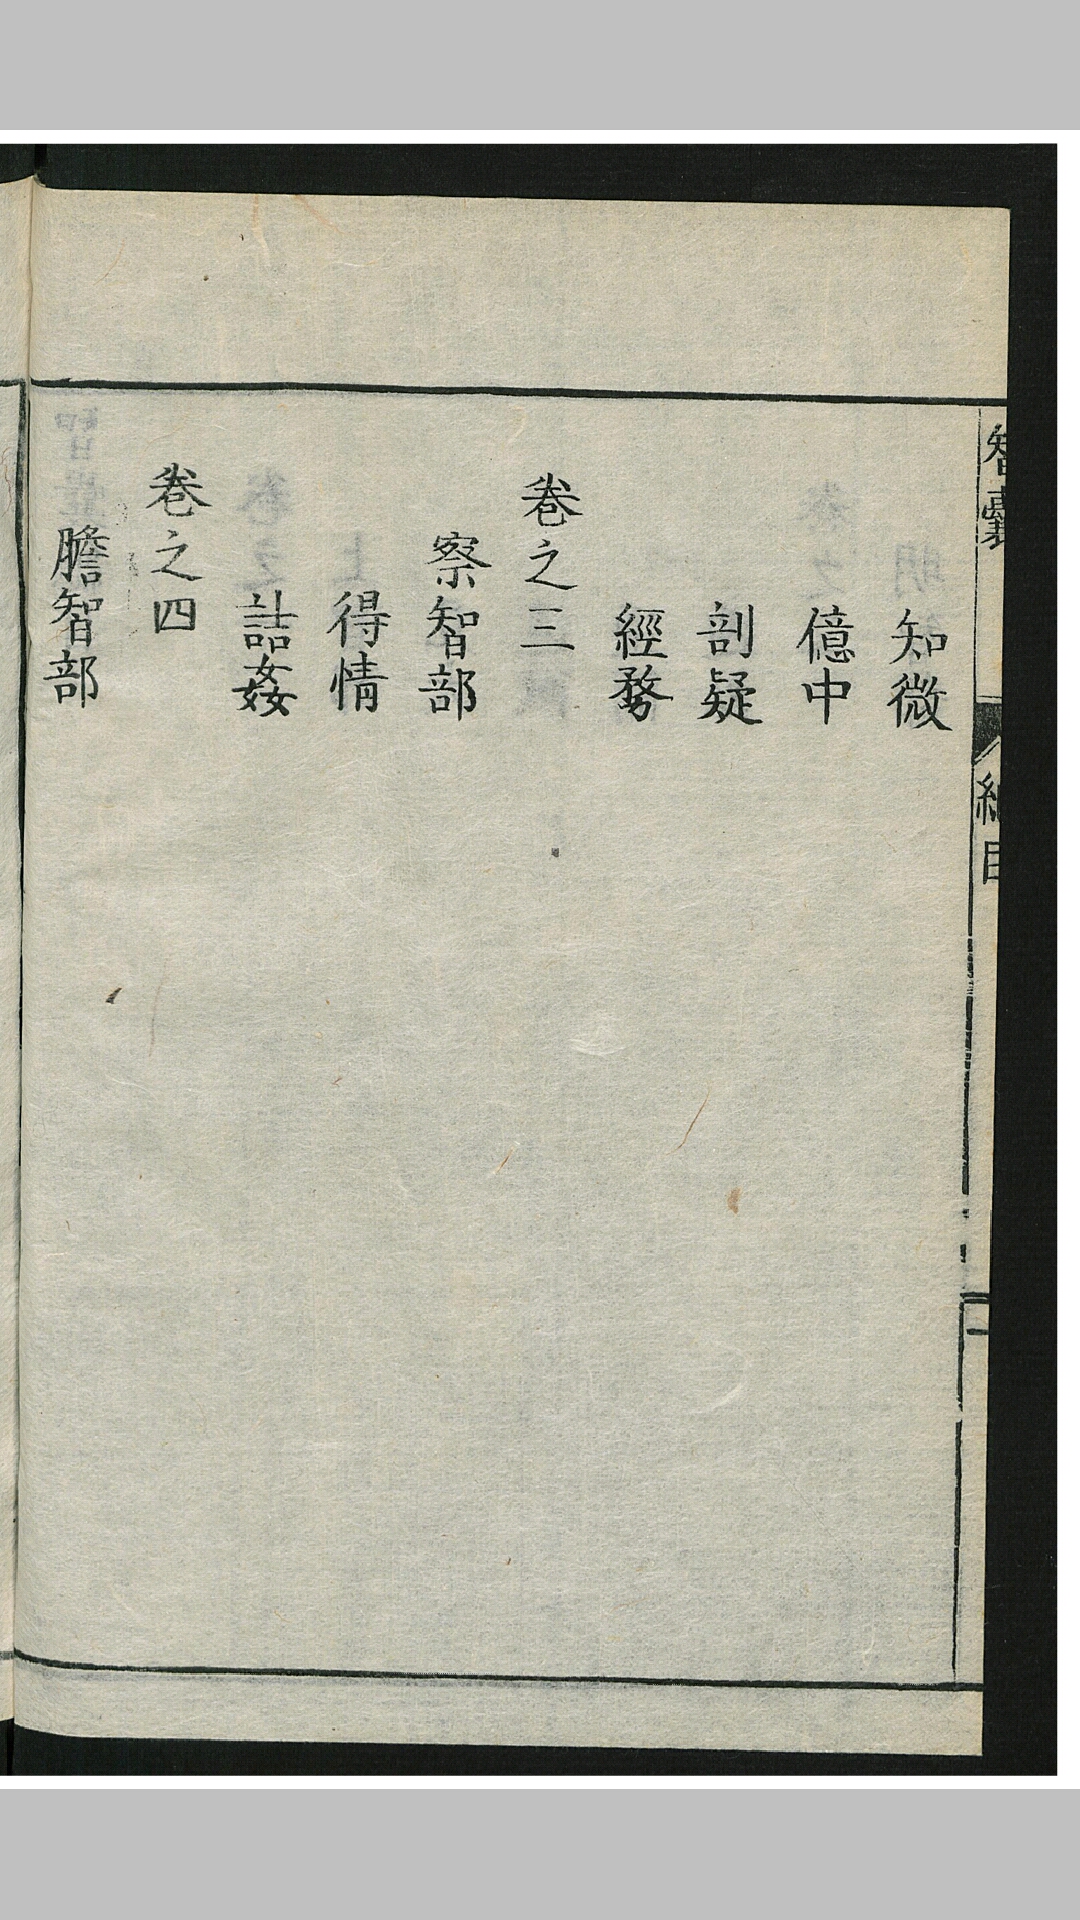 知微
億中
剖疑
經務
卷之三
察智部
得情
詰姦
卷之四
膽智部
智囊
總目
一